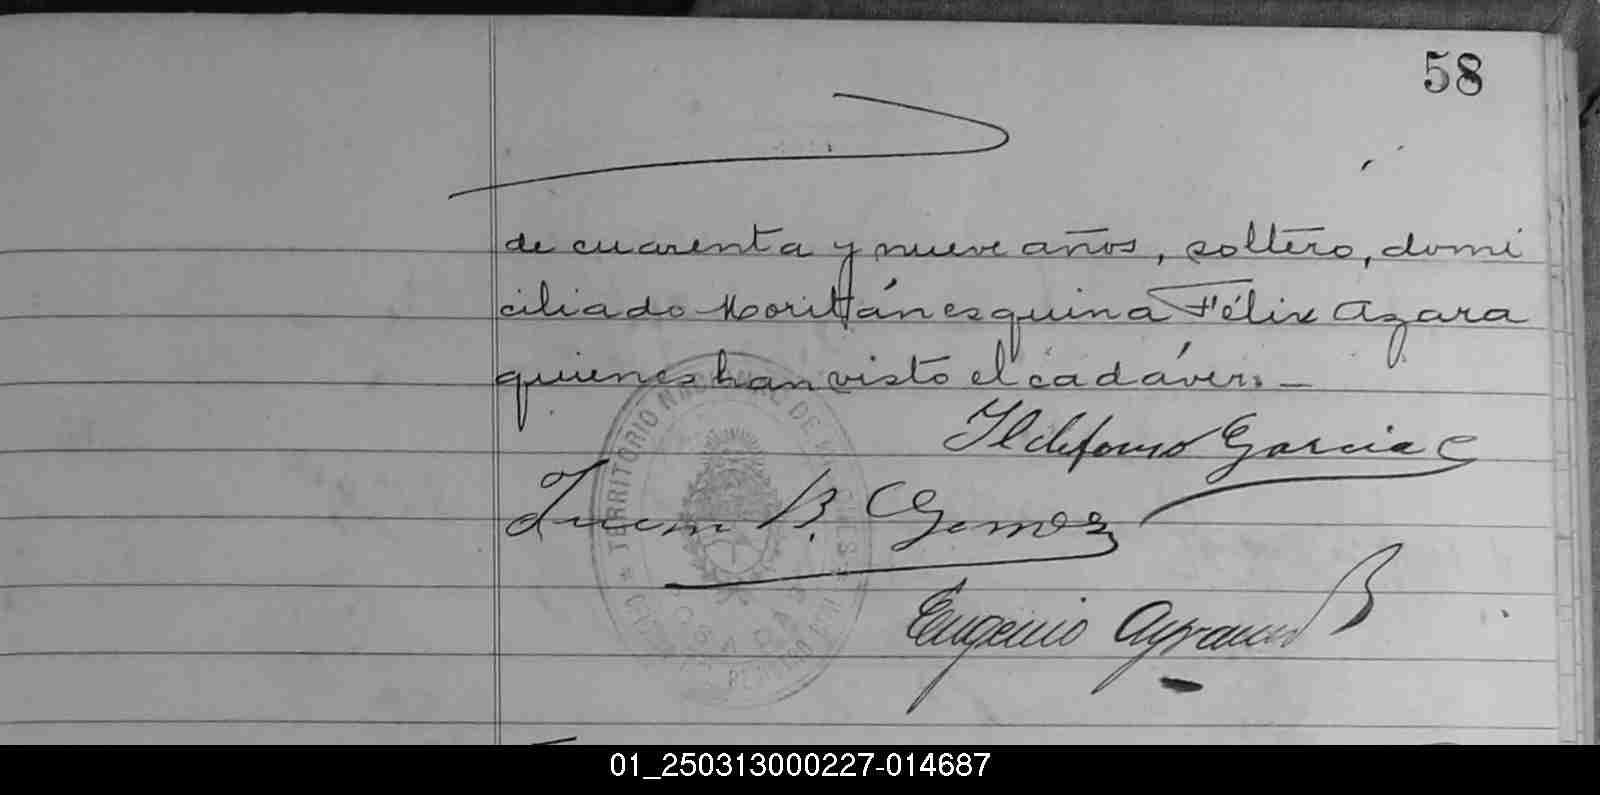 58
de cuarenta y nueve años, soltero, domi
ciliado esquina Félix Azara
quienes han visto el cadáver. —
Ildefonso Garcia
Juan B. Gomez
Eugenio
TERRITORIO NACIONAL DE MISIONES
POSADAS
01_250313000227-014687